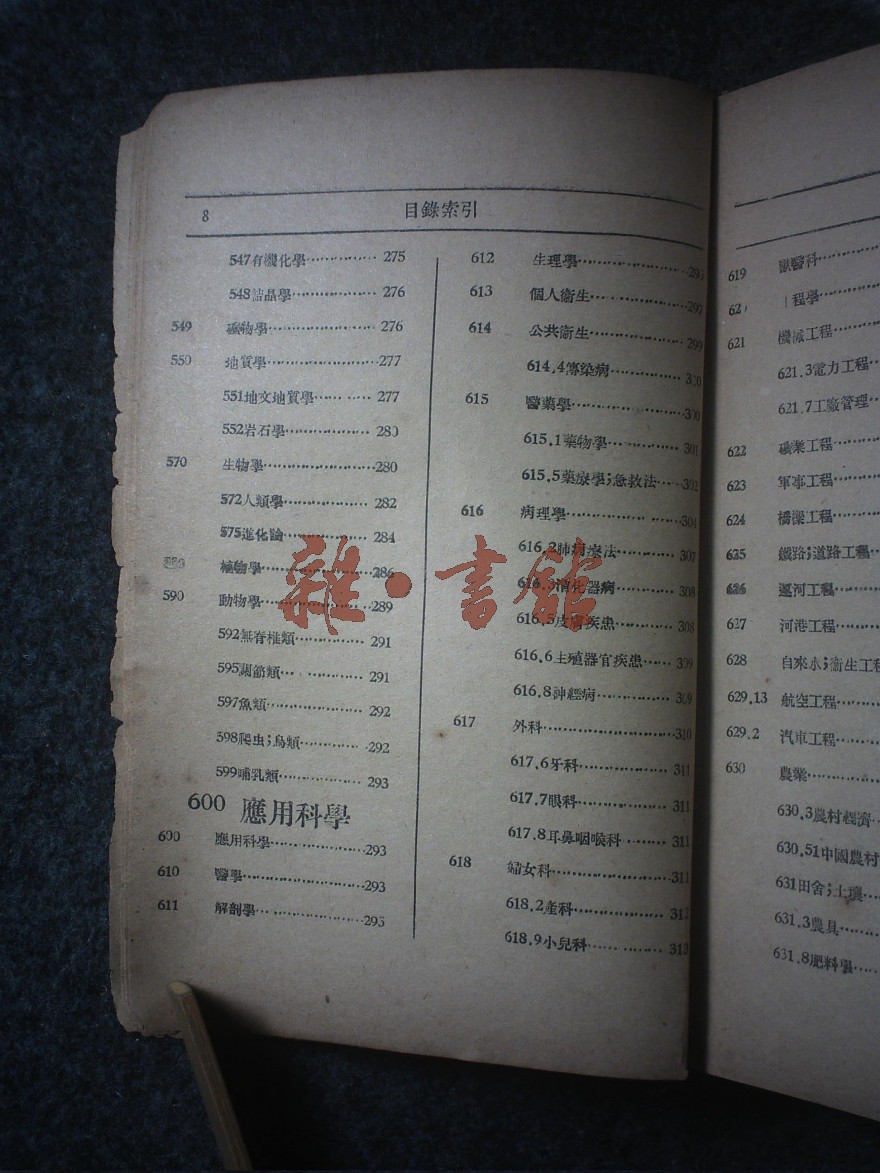 8 目錄索引
547有機化學 275
548結晶學 276
549 礦物學 276
550 地質學 277
551地文地質學 277
552岩石學 280
570 生物學 280
572人類學 282
575進化論 284
植物學 286
590 動物學 289
592無脊椎類 291
595關節類 291
597魚類 292
598爬虫；鳥類 292
599哺乳類 293
600 應用科學
600 應用科學 293
610 醫學 293
611 解剖學 295
612 生理學 295
613 個人衞生 297
614 公共衞生 299
614.4傳染病 300
615 醫藥學 300
615.1藥物學 301
615.5藥療學；急救法 302
616 病理學 304
616.2肺病療法 307
616.3消化器病 308
616.5皮膚疾患 308
616.6生殖器官疾患 309
616.8神經病 309
617 外科 310
617.6牙科 311
617.7眼科 311
617.8耳鼻咽喉科 311
618 婦女科 311
618.2產科 312
618.9小兒科 313
619 獸醫科
程學
621 機械工程
621.3電力工程
621.7工廠管理
622 礦業工程
623 軍事工程
624 橋樑工程
625 鐵路；道路工程
626 運河工程
627 河港工程
628 自來水；衞生工程
629.13 航空工程
629.2 汽車工程
630 農業
630.3農村經濟
630.51中國農村
631田舍；土壤
631.3農具
631.8肥料學
雜·書館